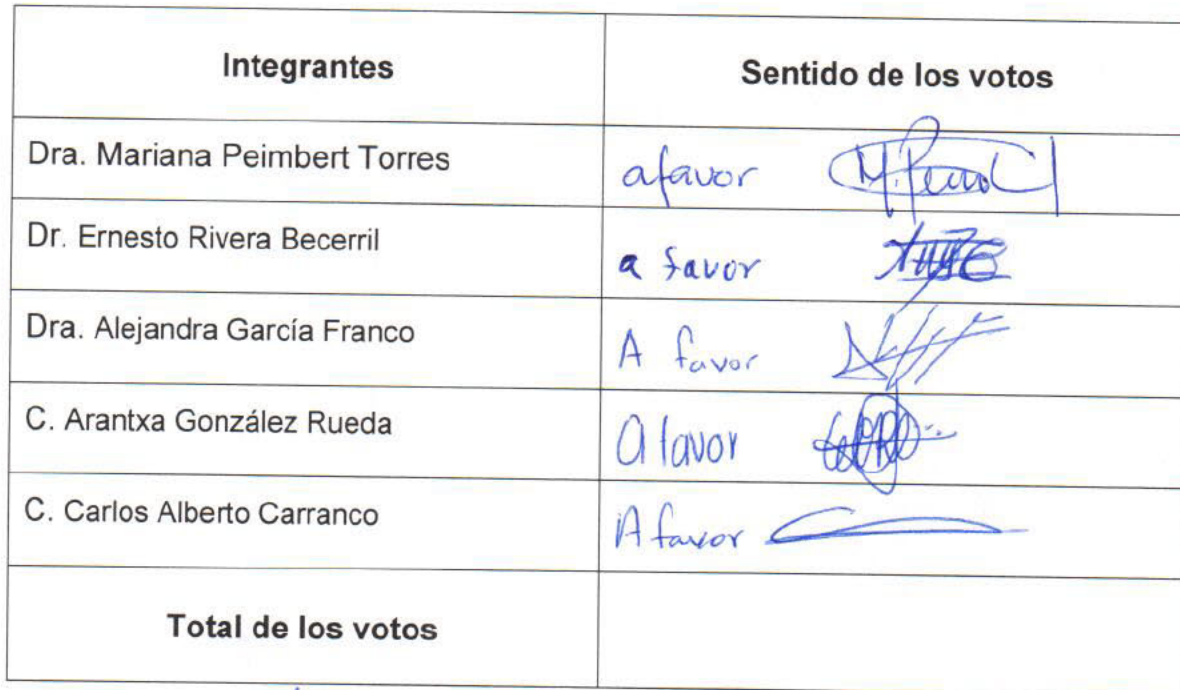 Integrantes Sentido de los votos
Dra. Mariana Peimbert Torres afavor
Dr. Ernesto Rivera Becerril a favor
Dra. Alejandra García Franco A favor
C. Arantxa González Rueda A favor
C. Carlos Alberto Carranco A favor
Total de los votos